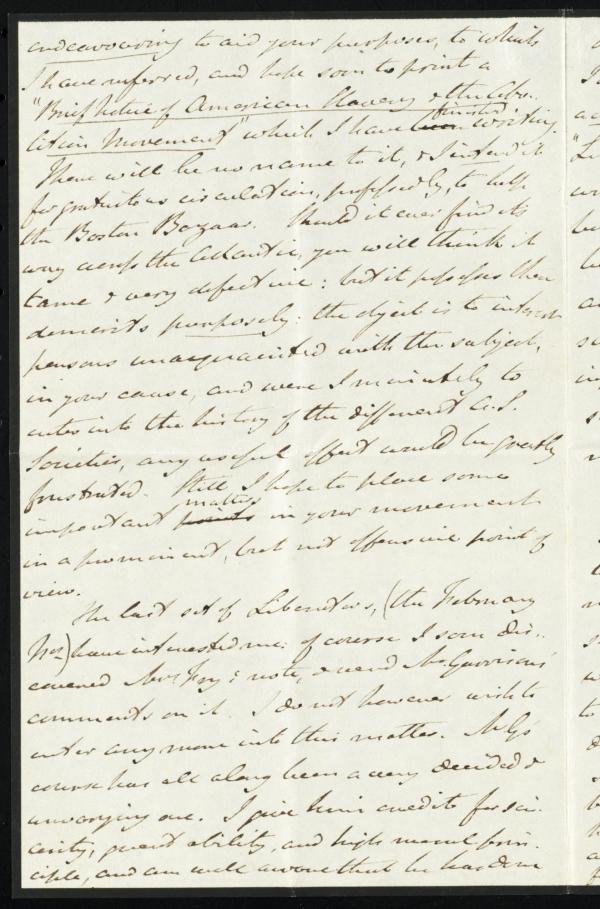 endeavouring to aid your purposes, to which
I have referred, and hope soon to print a
"Brief Notice of American Slavery & the Abo-
lition Movement" which I have been finished writing.
There will be no name to it, & I intend it
for gratuitous circulation, professedly, to help
the Boston Bazaar. Should it ever find its
way across the Atlantic, you will think it
tame & very defective: but it possesses these
demerits purposely: the object is to interest
persons unacquainted with the subject,
in your cause, and were I minutely to
enter into the history of the different A.S.
Societies, any useful effect would be greatly
frustrated. Still I hope to place some
important points matters in your movement
in a prominent, but not offensive point of
view.
The last set of Liberators, (the February
Nos) have interested me: of course I soon dis-
covered Mrs 's note, & read Mr Garrison's
comments on it. I do not however wish to
enter any more into this matter. Mr G's
course has all along been a very decided &
unvarying one. I give him credit for sin-
cerity, great ability, and high moral prin-
ciple, and am well aware that he has done